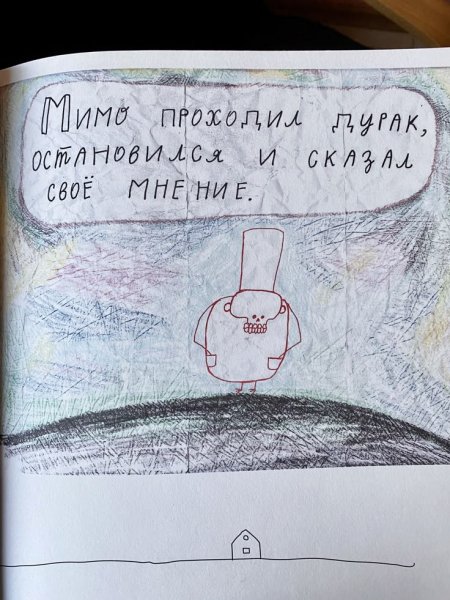 Мимо проходил дурак,
остановился и сказал
своё мнение.